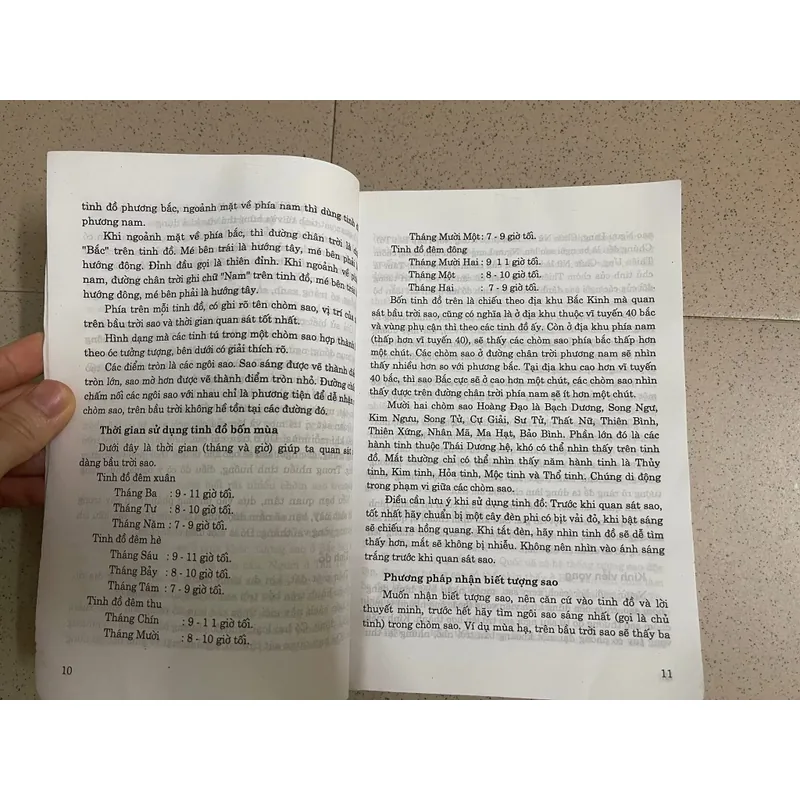 tinh đồ phương bắc, ngoảnh mặt về phía nam thì dùng tinh
phương nam.
Khi ngoảnh mặt về phía bắc, thì đường chân trời là
"Bắc" trên tinh đồ. Mé bên trái là hướng tây, mé bên phải
hướng đông. Đỉnh đầu gọi là thiên đỉnh. Khi ngoảnh về
nam, đường chân trời ghi chữ "Nam" trên tinh đồ, mé bên
hướng đông, mé bên phải là hướng tây.
Phía trên mỗi tinh đồ, có ghi rõ tên chòm sao, vị trí của
trên bầu trời sao và thời gian quan sát tốt nhất.
Hình dạng mà các tinh tú trong một chòm sao hợp thành
theo óc tưởng tượng, bên dưới có giải thích rõ.
Các điểm tròn là các ngôi sao. Sao sáng được vẽ thành
tròn lớn, sao mờ hơn được vẽ thành điểm tròn nhỏ. Đường
chấm nối các ngôi sao với nhau chỉ là phương tiện để dễ
chòm sao, trên bầu trời không hề tồn tại các đường đó.
Thời gian sử dụng tinh đồ bốn mùa
Dưới đây là thời gian (tháng và giờ) giúp ta quan sát
dàng bầu trời sao.
Tinh đồ đêm xuân
Tháng Ba : 9 - 11 giờ tối.
Tháng Tư : 8 - 10 giờ tối.
Tháng Năm : 7 - 9 giờ tối.
Tinh đồ đêm hè
Tháng Sáu : 9 - 11 giờ tối.
Tháng Bảy : 8 - 10 giờ tối.
Tháng Tám : 7 - 9 giờ tối.
Tinh đồ đêm thu
Tháng Chín : 9 - 1 1 giờ tối.
Tháng Mười : 8 - 10 giờ tối.
10
Tháng Mười Một : 7 - 9 giờ tối.
Tinh đồ đêm đông
Tháng Mười Hai : 9 1 1 giờ tối.
Tháng Một : 8 - 10 giờ tối.
Tháng Hai : 7 - 9 giờ tối.
Bốn tinh đồ trên là chiếu theo địa khu Bắc Kinh mà quan
sát bầu trời sao, cũng có nghĩa là ở địa khu thuộc vĩ tuyến 40 bắc
và vùng phụ cận thì theo các tinh đồ ấy. Còn ở địa khu phía nam
(thấp hơn vĩ tuyến 40), sẽ thấy các chòm sao phía bắc thấp hơn
một chút. Các chòm sao ở đường chân trời phương nam sẽ nhìn
thấy nhiều hơn so với phương bắc. Tại địa khu cao hơn vĩ tuyến
40 bắc, thì sao Bắc cực sẽ ở cao hơn một chút, các chòm sao nhìn
thấy được trên đường chân trời phía nam sẽ ít hơn một chút.
Mười hai chòm sao Hoàng Đạo là Bạch Dương, Song Ngư,
Kim Ngưu, Song Tử, Cự Giải, Sư Tử, Thất Nữ, Thiên Bình,
Thiên Xứng, Nhân Mã, Ma Hạt, Bảo Bình. Phần lớn đó là các
hành tinh thuộc Thái Dương hệ, khó có thể nhìn thấy trên tinh
đồ. Mắt thường chỉ có thể nhìn thấy năm hành tinh là Thủy
tinh, Kim tinh, Hỏa tinh, Mộc tinh và Thổ tinh. Chúng di động
trong phạm vi giữa các chòm sao.
Điều cần lưu ý khi sử dụng tinh đồ: Trước khi quan sát sao,
tốt nhất hãy chuẩn bị một cây đèn phi có bịt vải đỏ, khi bật sáng
sẽ chiếu ra hồng quang. Khi tắt đèn, hãy nhìn tinh đồ sẽ dễ tìm
thấy hơn, mắt sẽ không bị nhiễu. Không nên nhìn vào ánh sáng
trắng trước khi quan sát sao.
Phương pháp nhận biết tượng sao
Muốn nhận biết tượng sao, nên căn cứ vào tinh đồ và lời
thuyết minh, trước hết hãy tìm ngôi sao sáng nhất (gọi là chủ
tinh) trong chòm sao. Ví dụ mùa hạ, trên bầu trời sao sẽ thấy ba
11